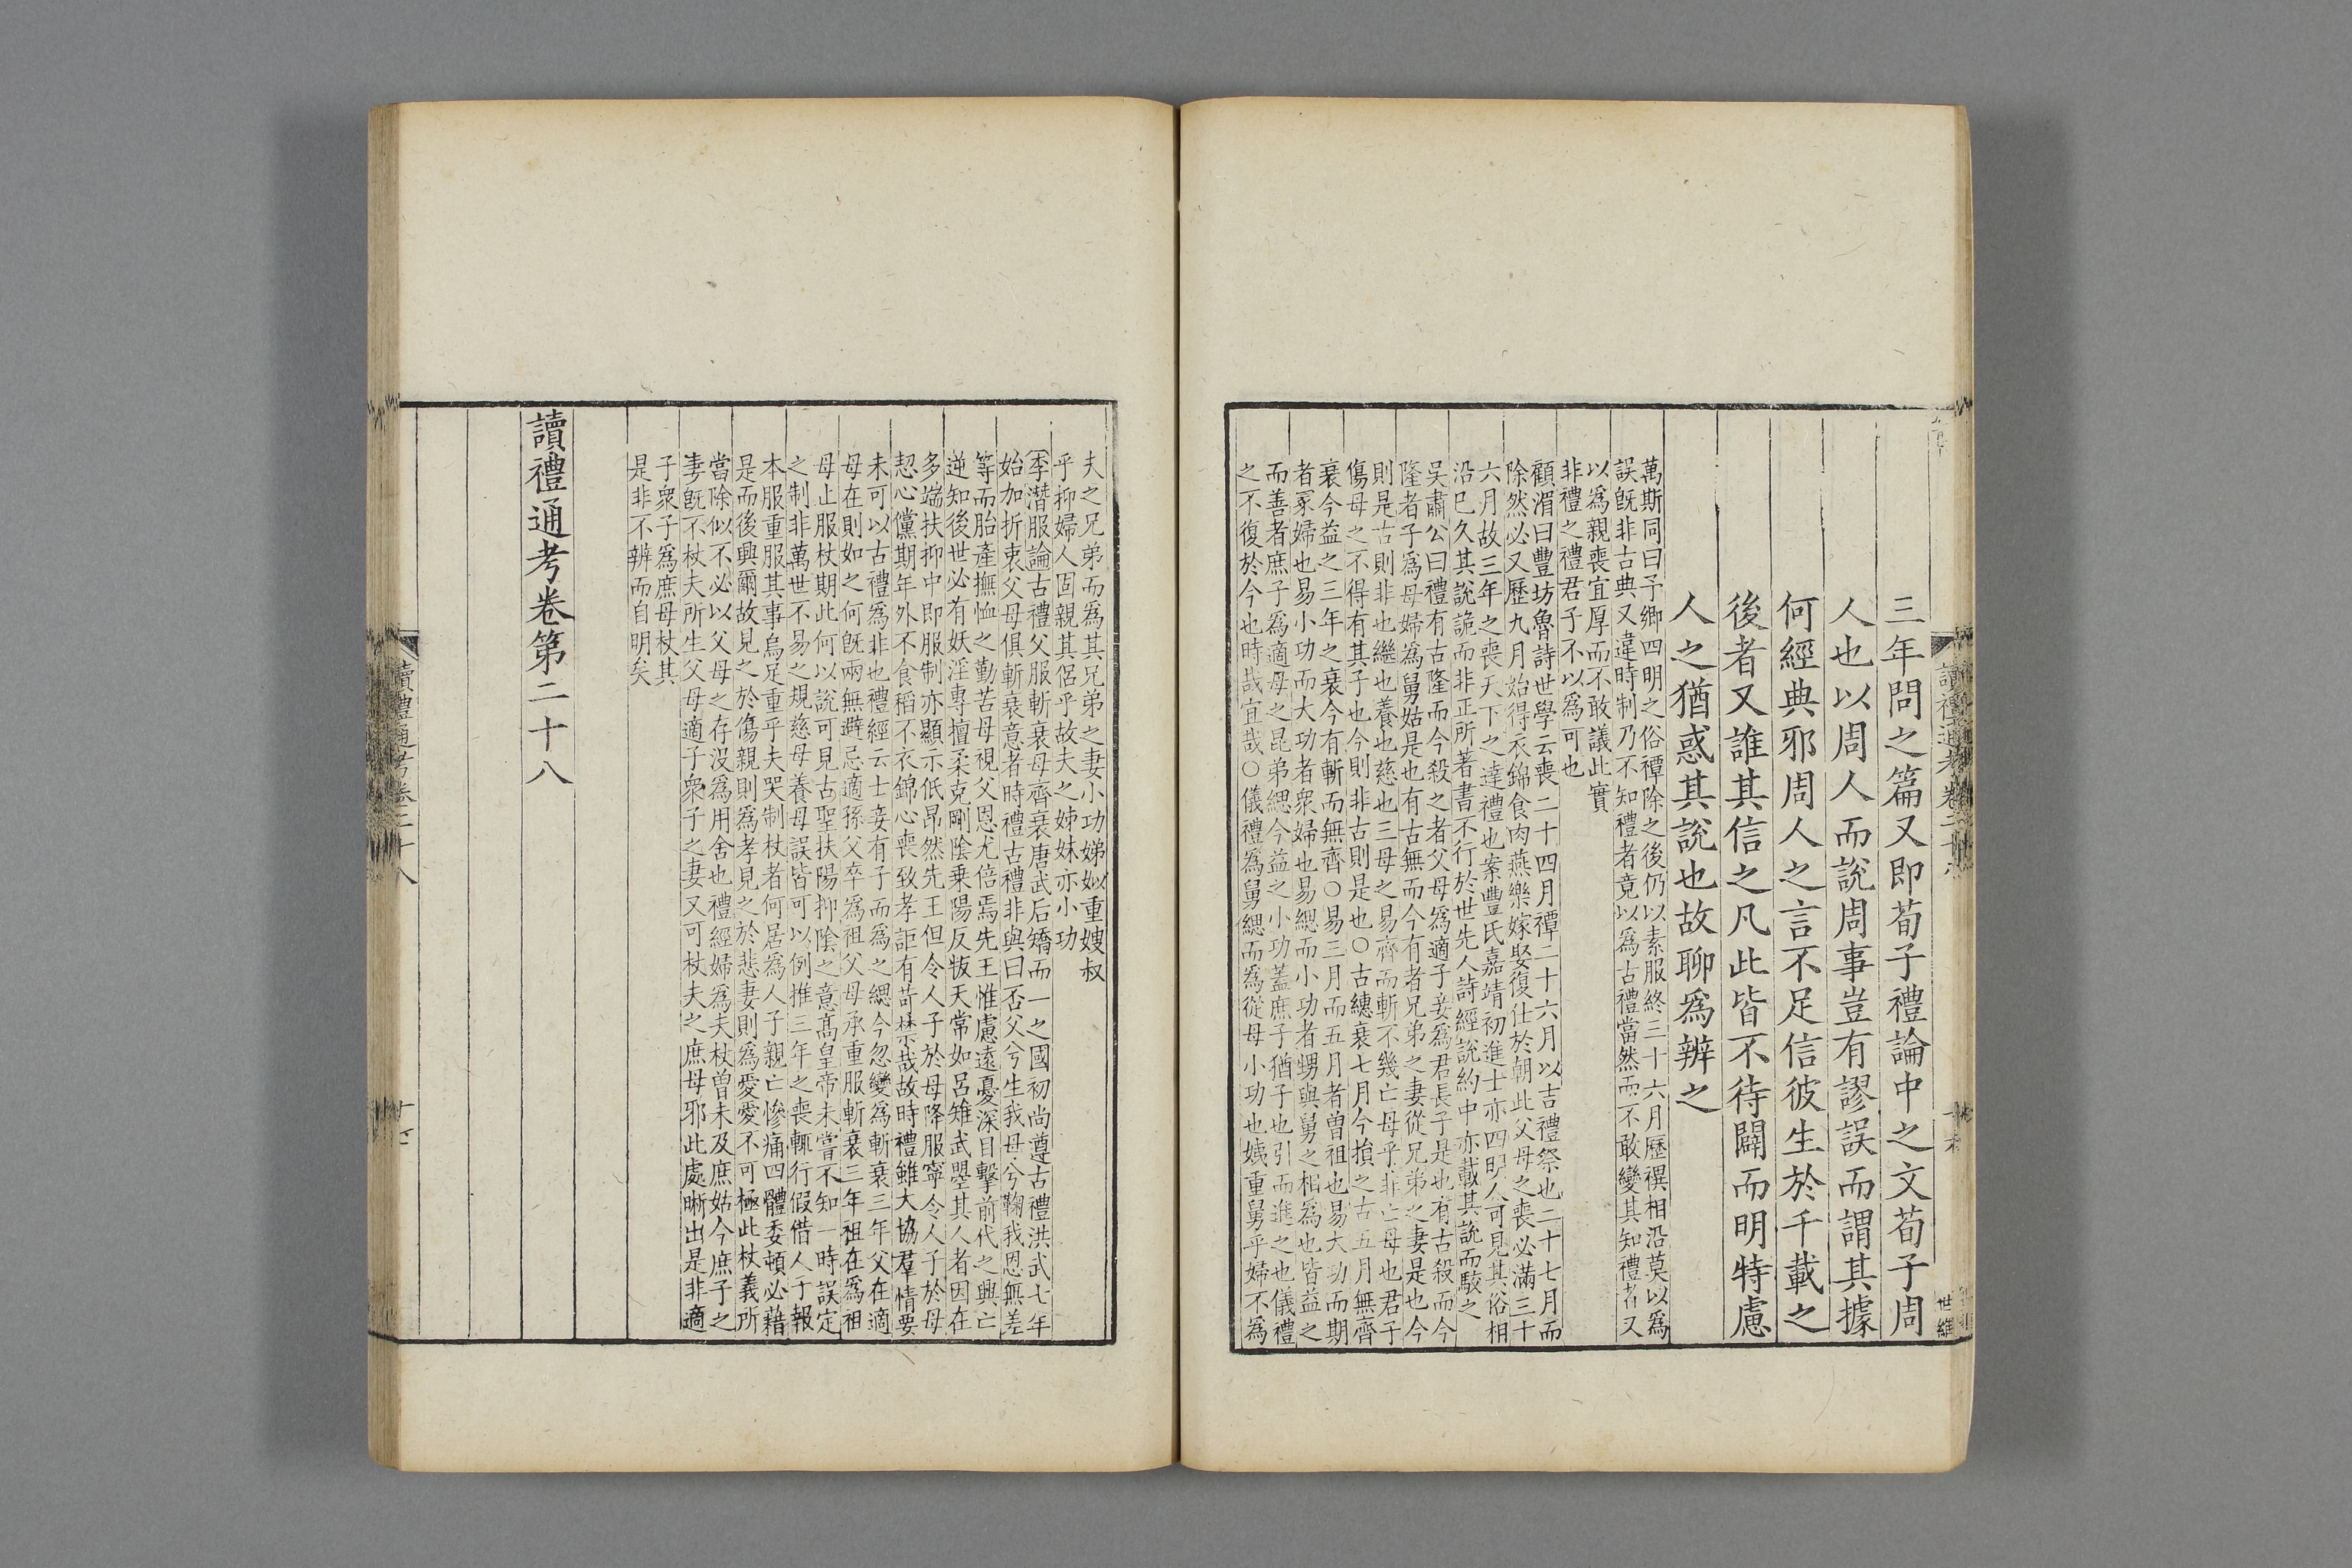 三年問之篇又即荀子禮論中之文荀子周
人也以周人而說周事豈有謬誤而謂其據
何經典邪周人之言不足信彼生於千載之
後者又誰其信之凡此皆不待闢而明特慮
人之猶惑其說也故聊爲辨之
萬斯同曰予鄉四明之俗禫除之後仍以素服終三十六月歷禩相沿莫以爲
誤旣非古典又違時制乃不知禮者竟以爲古禮當然而不敢變其知禮者又
以爲親喪宜厚而不敢議此實
非禮之禮君子不以爲可也
顧湄曰豐坊魯詩世學云喪二十四月禫二十六月以吉禮祭也二十七月而
除然必又歷九月始得衣錦食肉燕樂嫁娶復仕於朝此父母之喪必滿三十
六月故三年之喪天下之達禮也案豐氏嘉靖初進士亦四明人可見其俗相
沿已久其說詭而非正所著書不行於世先人詩經說約中亦載其說而駁之
吳肅公曰禮有古隆而今殺之者父母爲適子妾爲君長子是也有古殺而今
隆者子爲母婦爲舅姑是也有古無而今有者兄弟之妻從兄弟之妻是也今
則是古則非也繼也養也慈也三母之易齊而斬不幾亡母乎非亡母也君子
傷母之不得有其子也今則非古則是也○古繐衰七月今損之古五月無齊
衰今益之三年之衰今有斬而無齊○易三月而五月者曾祖也易大功而期
者冢婦也易小功而大功者衆婦也易緦而小功者甥與舅之相爲也皆益之
而善者庶子爲適母之昆弟緦今益之小功蓋庶子猶子也引而進之也儀禮
之不復於今也時哉宜哉○儀禮爲舅緦而爲從母小功也姨重舅乎婦不爲
夫之兄弟而爲其兄弟之妻小功娣姒重嫂叔
乎抑婦人固親其侶乎故夫之姊妹亦小功
季潛服論古禮父服斬衰母齊衰唐武后矯而一之國初尚遵古禮洪武七年
始加折衷父母俱斬衰意者時禮古禮非與曰否父兮生我母兮鞠我恩無差
等而胎產撫恤之勤苦母視父恩尤倍焉先王惟慮遠憂深目擊前代之興亡
逆知後世必有妖淫專擅柔克剛陰乗陽反叛天常如呂雉武曌其人者因在
多端扶抑中即服制亦顯示低昂然先王但令人子於母降服寧令人子於母
恝心儻期年外不食稻不衣錦心喪致孝詎有苛禁哉故時禮雖大協羣情要
未可以古禮爲非也禮經云士妾有子而爲之緦今忽變爲斬衰三年父在適
母在則如之何旣兩無避忌適孫父卒爲祖父母承重服斬衰三年祖在爲祖
母止服杖期此何以說可見古聖扶陽抑陰之意高皇帝未嘗不知一時誤定
之制非萬世不易之規慈母養母誤皆可以例推三年之喪輒行假借人于報
本服重服其事烏足重乎夫哭制杖者何居爲人子親亡慘痛四體委頓必藉
是而後興爾故見之於傷親則爲孝見之於悲妻則爲愛愛不可極此杖義所
當除似不必以父母之存沒爲用舍也禮經婦爲夫杖曾未及庶姑今庶子之
妻旣不杖夫所生父母適子衆子之妻又可杖夫之庶母邪此處晰出是非適
子衆子爲庶母杖其
是非不辨而自明矣
讀禮通考卷第二十八
讀禮通考卷二十八